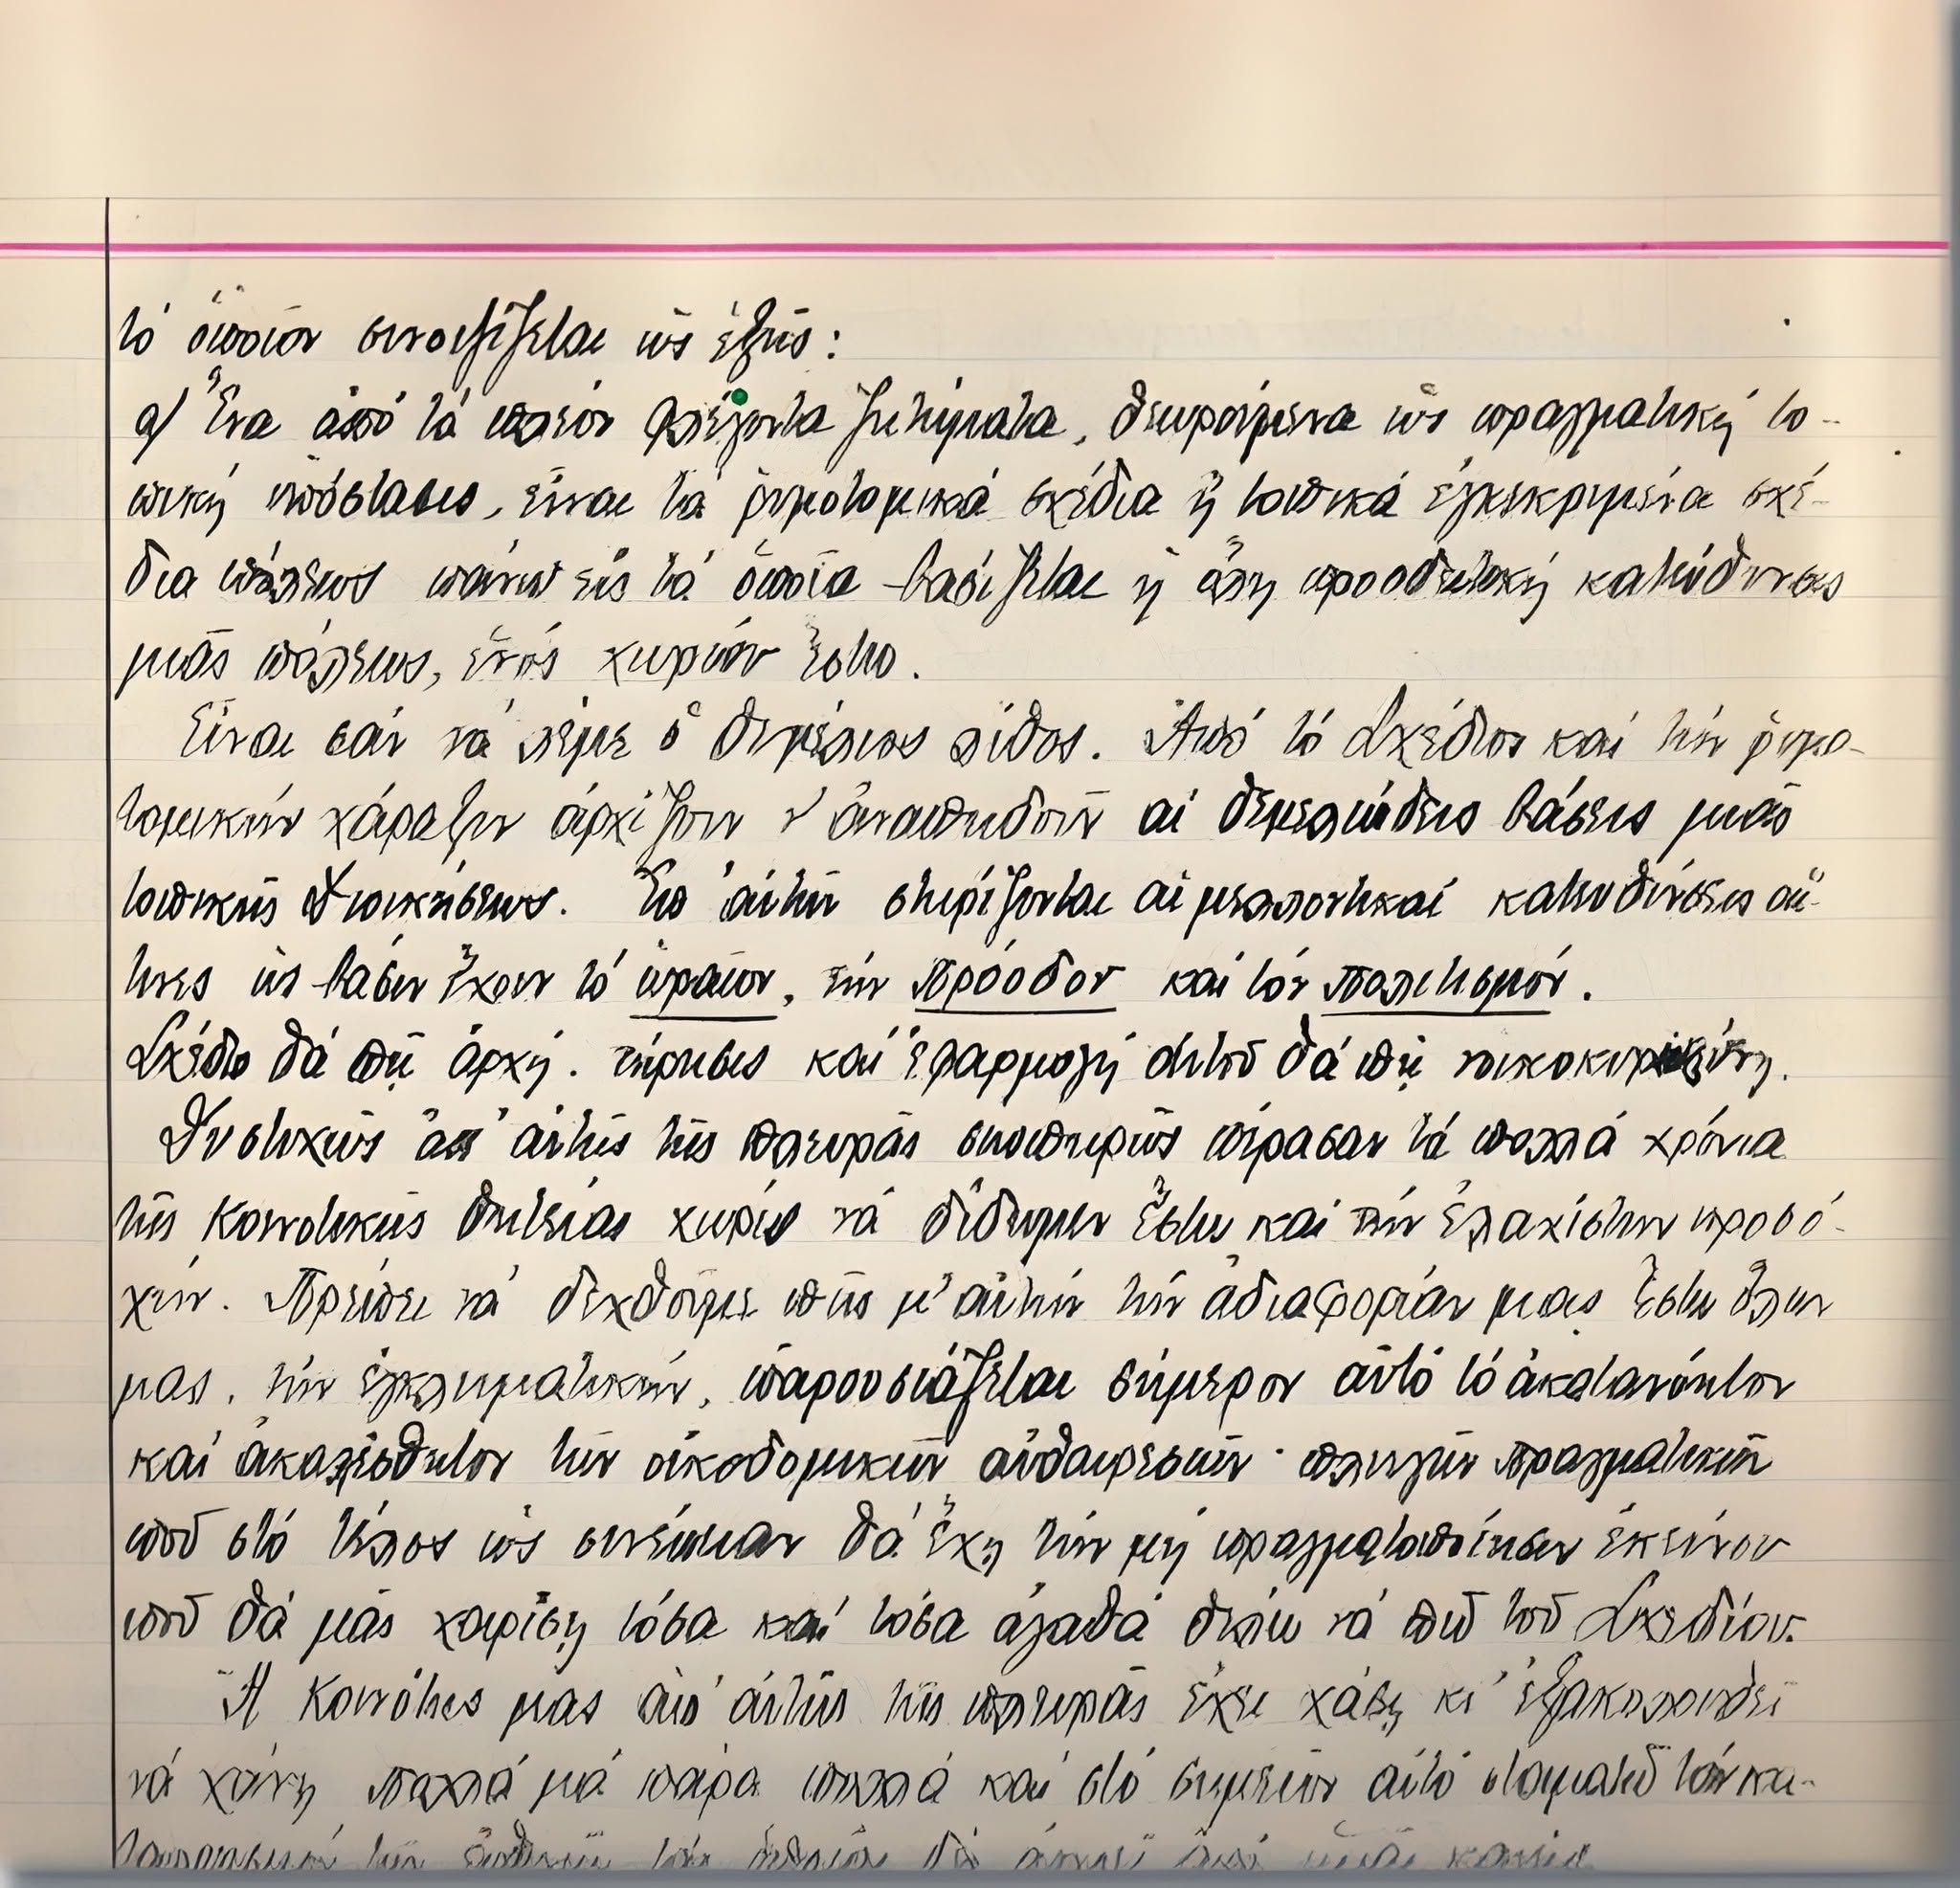 τό ὁποῖον συνοψίζεται ὡς ἑξῆς:
α) Ἕνα ἀπό τά πλέον φλέγοντα ζητήματα, θεωρούμενα ὡς πραγματική το-
πική ὑπόστασις, εἶναι τά ῥυμοτομικά σχέδια ἤ τοπικά ἐγκεκριμένα σχέ-
δια πόλεως πάνω εἰς τά ὁποῖα βασίζεται ἡ ὅλη προοδευτική κατεύθυνσις
μιᾶς πόλεως, ἑνός χωριοῦ ἔστω.
Εἶναι σάν νά λέμε ὁ θεμέλιος λίθος. Ἀπό τό Σχέδιον καί τήν ῥυμο-
τομικήν χάραξιν ἀρχίζουν ν' ἀναπηδοῦν αἱ θεμελιώδεις βάσεις μιᾶς
τοπικῆς Διοικήσεως. Ἐπ' αὐτῆς στηρίζονται αἱ μελλοντικαί κατευθύνσεις αἵ-
τινες ὡς βάσιν ἔχουν τό ὡραῖον, τήν πρόοδον καί τόν πολιτισμόν.
Σχέδιο θά πῆ ἀρχή. τήρησις καί ἐφαρμογή αὐτοῦ θά πῆ νοικοκυρωσύνη.
Δυστυχῶς ἀπ' αὐτῆς τῆς πλευρᾶς σιωπηρῶς πέρασαν τά πολλά χρόνια
τῆς Κοινοτικῆς θητείας χωρίς νά δίδωμεν ἔστω καί τήν ἐλαχίστην προσο-
χήν. Πρέπει νά δεχθοῦμε πῶς μ' αὐτήν τήν ἀδιαφορίαν μας ἔστω ὅλων
μας, τήν ἐγκληματικήν, παρουσιάζεται σήμερον αὐτό τό ἀκατανόητον
καί ἀκαλαίσθητον τῶν οἰκοδομικῶν αὐθαιρεσιῶν · πληγῶν πραγματικῶν
πού στό τέλος ὡς συνέπειαν θά ἔχη τήν μή πραγματοποίησιν ἐκείνου
πού θά μᾶς χαρίση τόσα καί τόσα ἀγαθά θέλω νά πῶ τοῦ Σχεδίου.
Ἡ Κοινότης μας ἀπ' αὐτῆς τῆς πλευρᾶς ἔχει χάση κι' ἐξακολουθεῖ
νά χάνη πολλά μά πάρα πολλά καί στό σημεῖον αὐτό σταματῶ τόν κα-